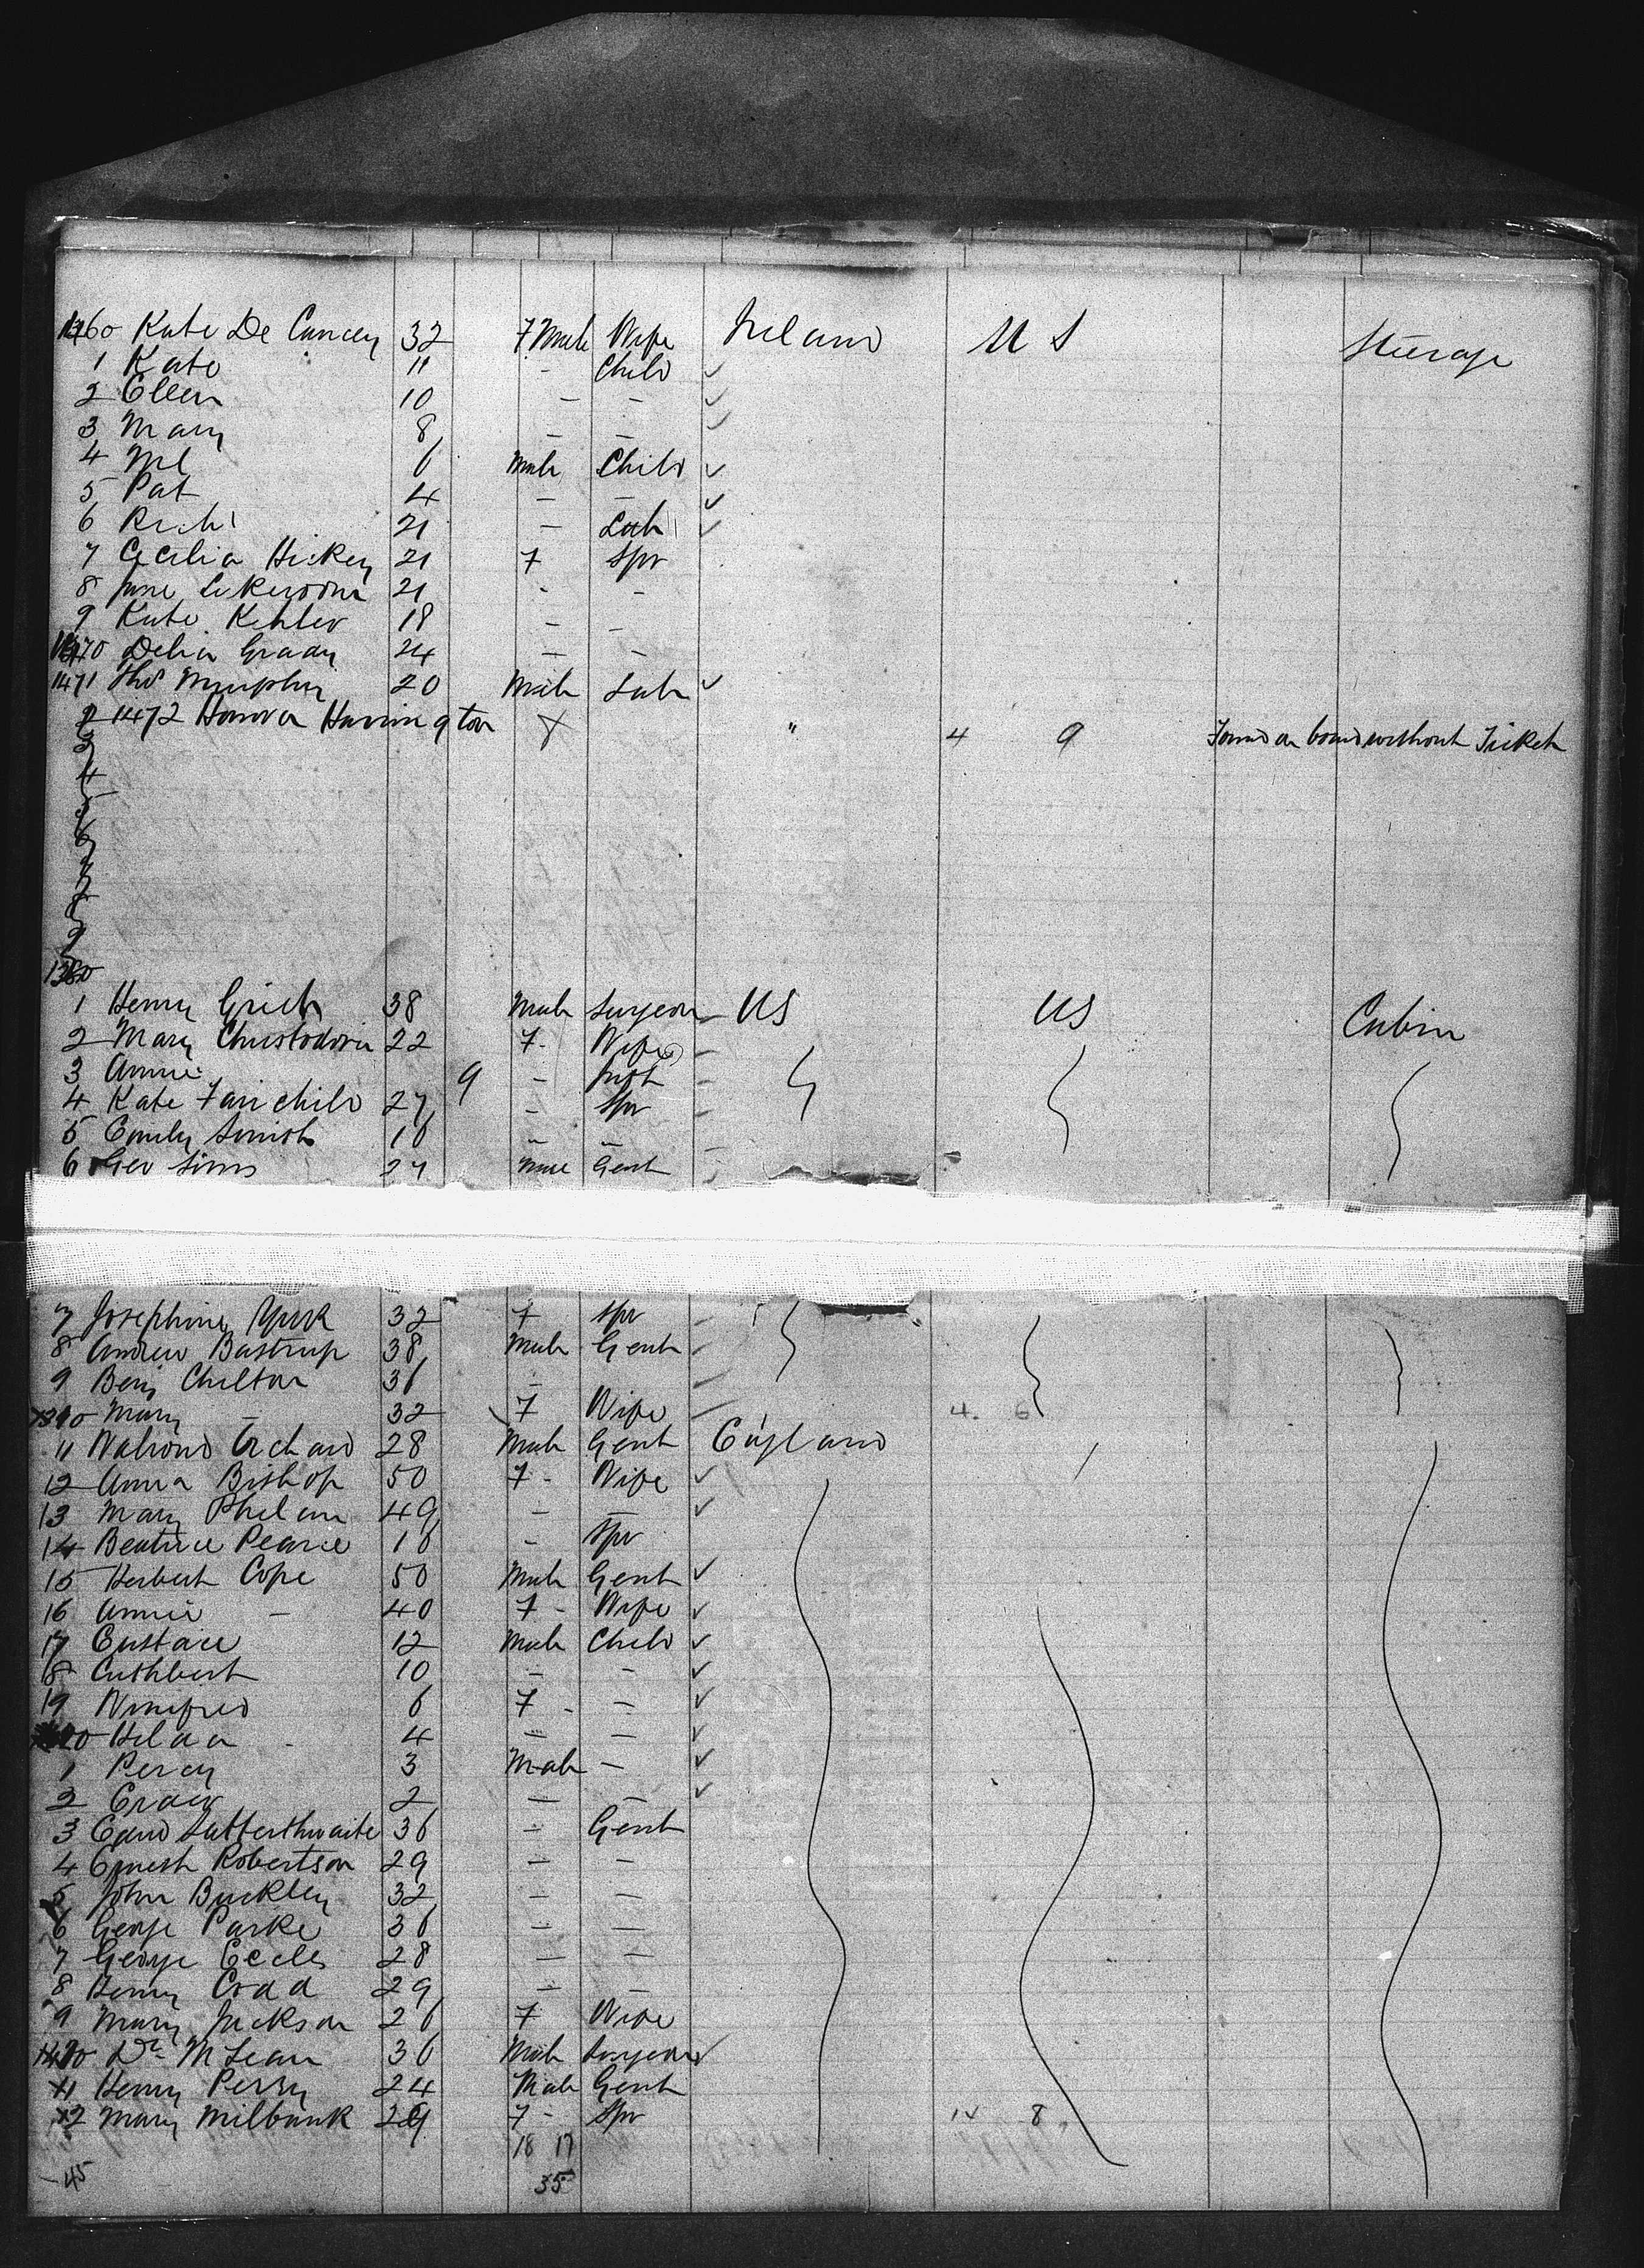 1460 Kate De Cuncey 32 F Male Wife Ireland U S Steerage
1 Kate 11 - Child ✓
2 Ellen 10 - - ✓
3 Mary 8 - - ✓
4 Ml 6 Male Child ✓
5 Pat 4 - - ✓
6 Richd 21 - Lab ✓
7 Cecilia Hickey 21 F Spr
8 Jane 21 - -
9 Kate 18 - -
1470 Delia Grady 24 - -
1471 Thos Murphy 20 Male Lab ✓
2 1472 Honora Harrington X " 4 9 Found on board without Ticket
3
4
5
6
7
8
9
1380
1 Henry 38 Male Surgeon - US US Cabin
2 Mary 22 F - Wife -
3 Annie 9 - Inft -
4 Kate Fairchild 27 - Spr -
5 Emily Smith 16 - - -
6 Geo Sims 27 Male Gent -
7 Josephine York 32 F Spr -
8 Andrew Bastrup 38 Male Gent -
9 Benj Chilton 36 - -
1390 Mary - 32 F Wife - 4 6
11 Walrond Orchard 28 Male Gent England
12 Anna Bishop 50 F - Wife ✓
13 Mary Phelan 49 - - ✓
14 Beatrice Pearce 16 - Spr
15 Herbert Cope 50 Male Gent ✓
16 Annie - 40 F - Wife ✓
17 Eustace 12 Male Child ✓
18 Cuthbert 10 - - ✓
19 Winifred 6 F - - ✓
20 Hilda 4 - - ✓
1 Percy 3 Male - ✓
2 2 - - ✓
3 Edwd Satterthwaite 36 - Gent
4 Ernest Robertson 29 - -
5 John Buckley 32 - -
6 George Parke 36 - -
7 George Eccles 28 - -
8 Henry 29 - -
9 Mary Jackson 26 F Wife
Dr McLean 36 Male Surgeon ✓
11 Henry Perry 24 Male Gent
12 Mary Milbank 29 F - Spr 14 8
18 17
45 35